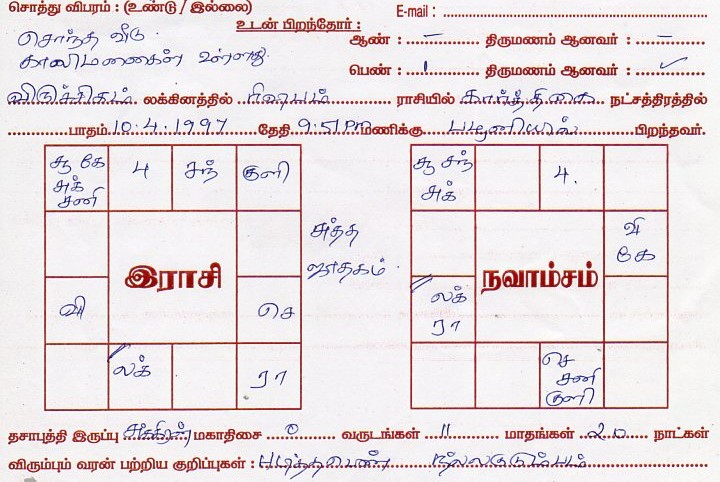 சொத்து விபரம் : (உண்டு / இல்லை) E-mail :
உடன் பிறந்தோர் :
சொந்த வீடு
ஆண் : – திருமணம் ஆனவர் : –
காலிமனைகள் உள்ளது
பெண் : 1 திருமணம் ஆனவர் : ✓
விருச்சிகம் லக்கினத்தில் ரிஷபம் ராசியில் கார்த்திகை நட்சத்திரத்தில்
பாதம் 10.4.1997 தேதி 9.51 PM மணிக்கு பழனியில் பிறந்தவர்.
சூ கே 4 சந் குளி
சுக்
சனி
சூ சந் 4.
சுக்
சுத்த
ஜாதகம்
வி
கே
இராசி
நவாம்சம்
வி செ
லக்
ரா
லக் ரா
செ
சனி
குளி
தசாபுத்தி இருப்பு மகாதிசை 0 வருடங்கள் 11 மாதங்கள் 20 நாட்கள்
விரும்பும் வரன் பற்றிய குறிப்புகள் : படித்தபெண் நல்லகுடும்பம்